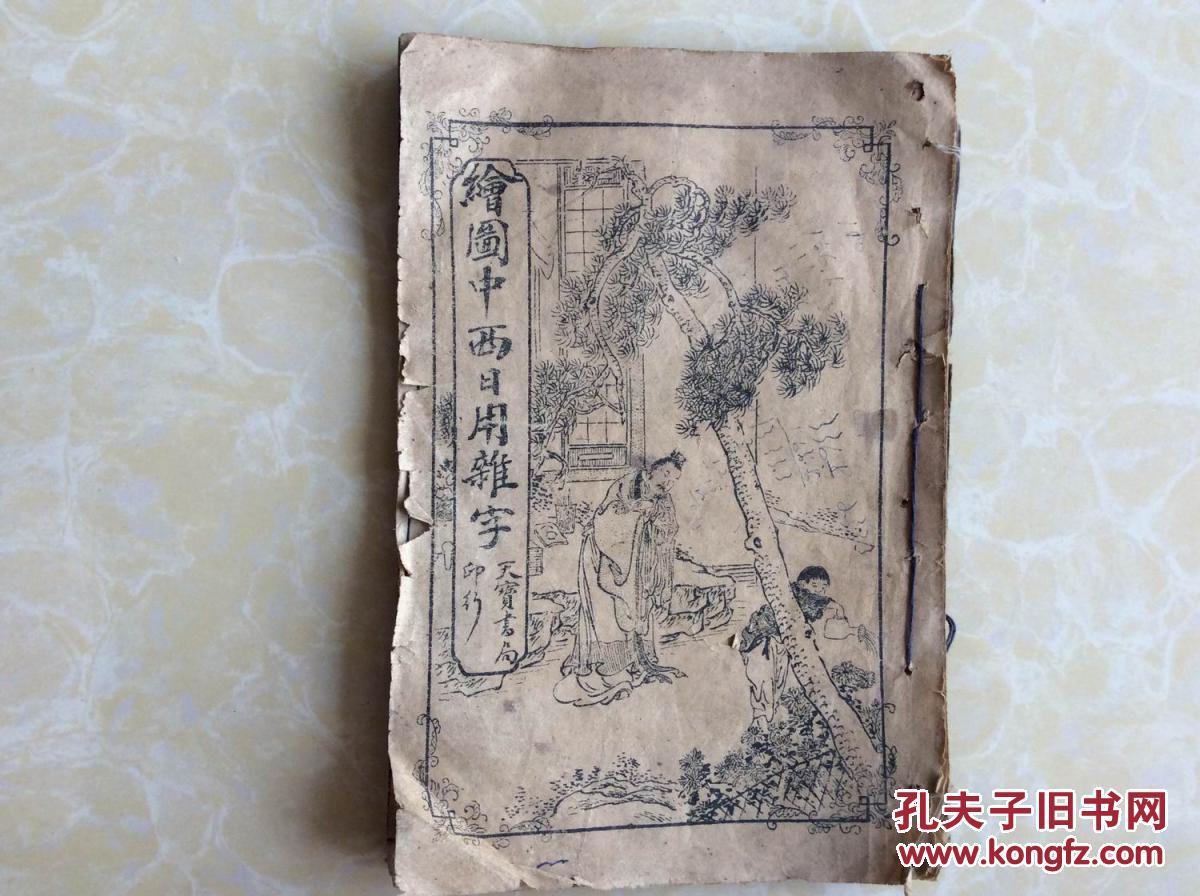 繪圖中西日用雜字
天寶書局
印行
孔夫子旧书网
www.kongfz.com